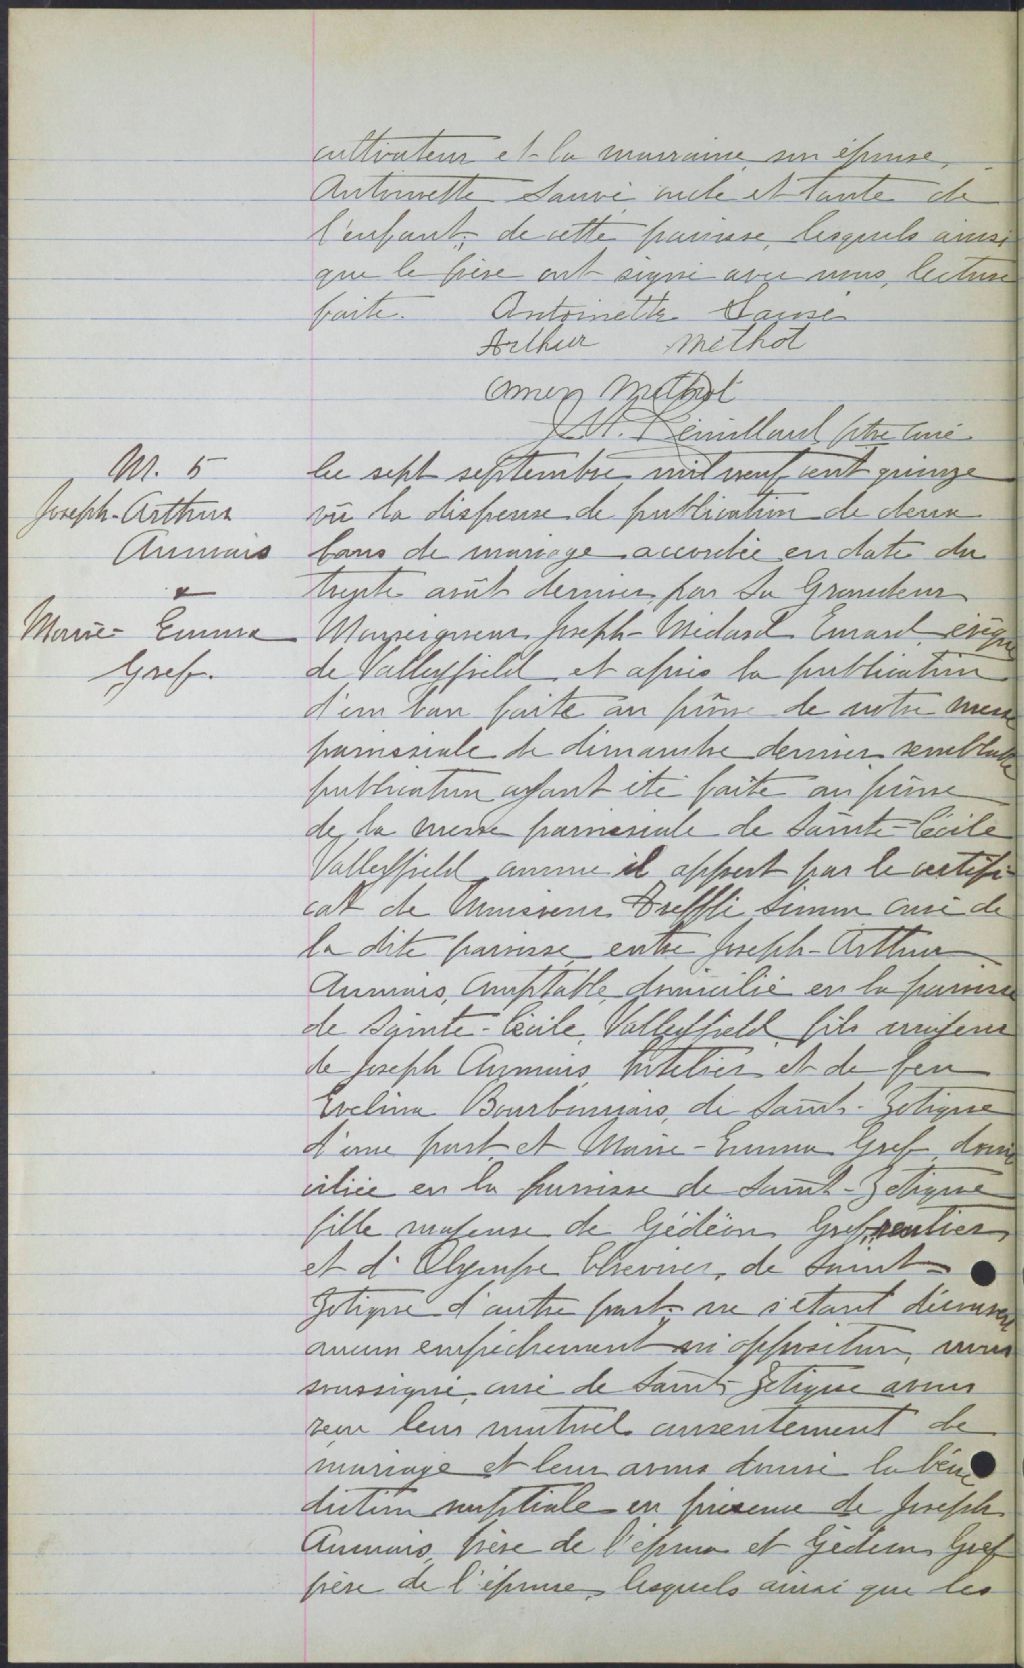 cultivateur et la marraine, son épouse,
Antoinette Sauvé oncle et tante de
l'enfant, de cette paroisse, lesquels ainsi
que le père ont signé avec nous, lecture
faite. Antoinette Sauvé
Arthur Methot
Omer Methot
Remillard ptre curé
M. 5
Joseph-Arthur
Aumais
&
Marie-Emma
Gref.
Le sept septembre mil neuf cent quinze
vû la dispense de publication de deux
bans de mariage accordée en date du
trente août dernier par Sa Grandeur
Monseigneur Joseph-Médard Emard évêque
de Valleyfield et après la publication
d'un ban faite au prône de notre messe
paroissiale de dimanche dernier semblable
publication ayant été faite au prône
de la messe paroissiale de Sainte-Cécile
Valleyfield comme il appert par le certifi-
cat de Monsieur Treffle Simon curé de
la dite paroisse, entre Joseph-Arthur
Aumais, comptable, domicilié en la paroisse
de Sainte-Cécile, Valleyfield fils majeur
de Joseph Aumais, hôtelier et de feu
Evelina Bourbonnais, de Saint-Zotique
d'une part et Marie-Emma Gref, domi
ciliée en la paroisse de Saint-Zotique
fille majeure de Gédéon Gref, rentier
et d'Olympe Chevrier, de Saint-
Zotique d'autre part; ne s'étant découvert
aucun empêchement ni opposition, nous
soussigné, curé de Saint-Zotique avons
reçu leur mutuel consentement de
mariage et leur avons donné la béné
diction nuptiale en présence de Joseph
Aumais, père de l'époux et Gédéon Gref
père de l'épouse, lesquels ainsi que les